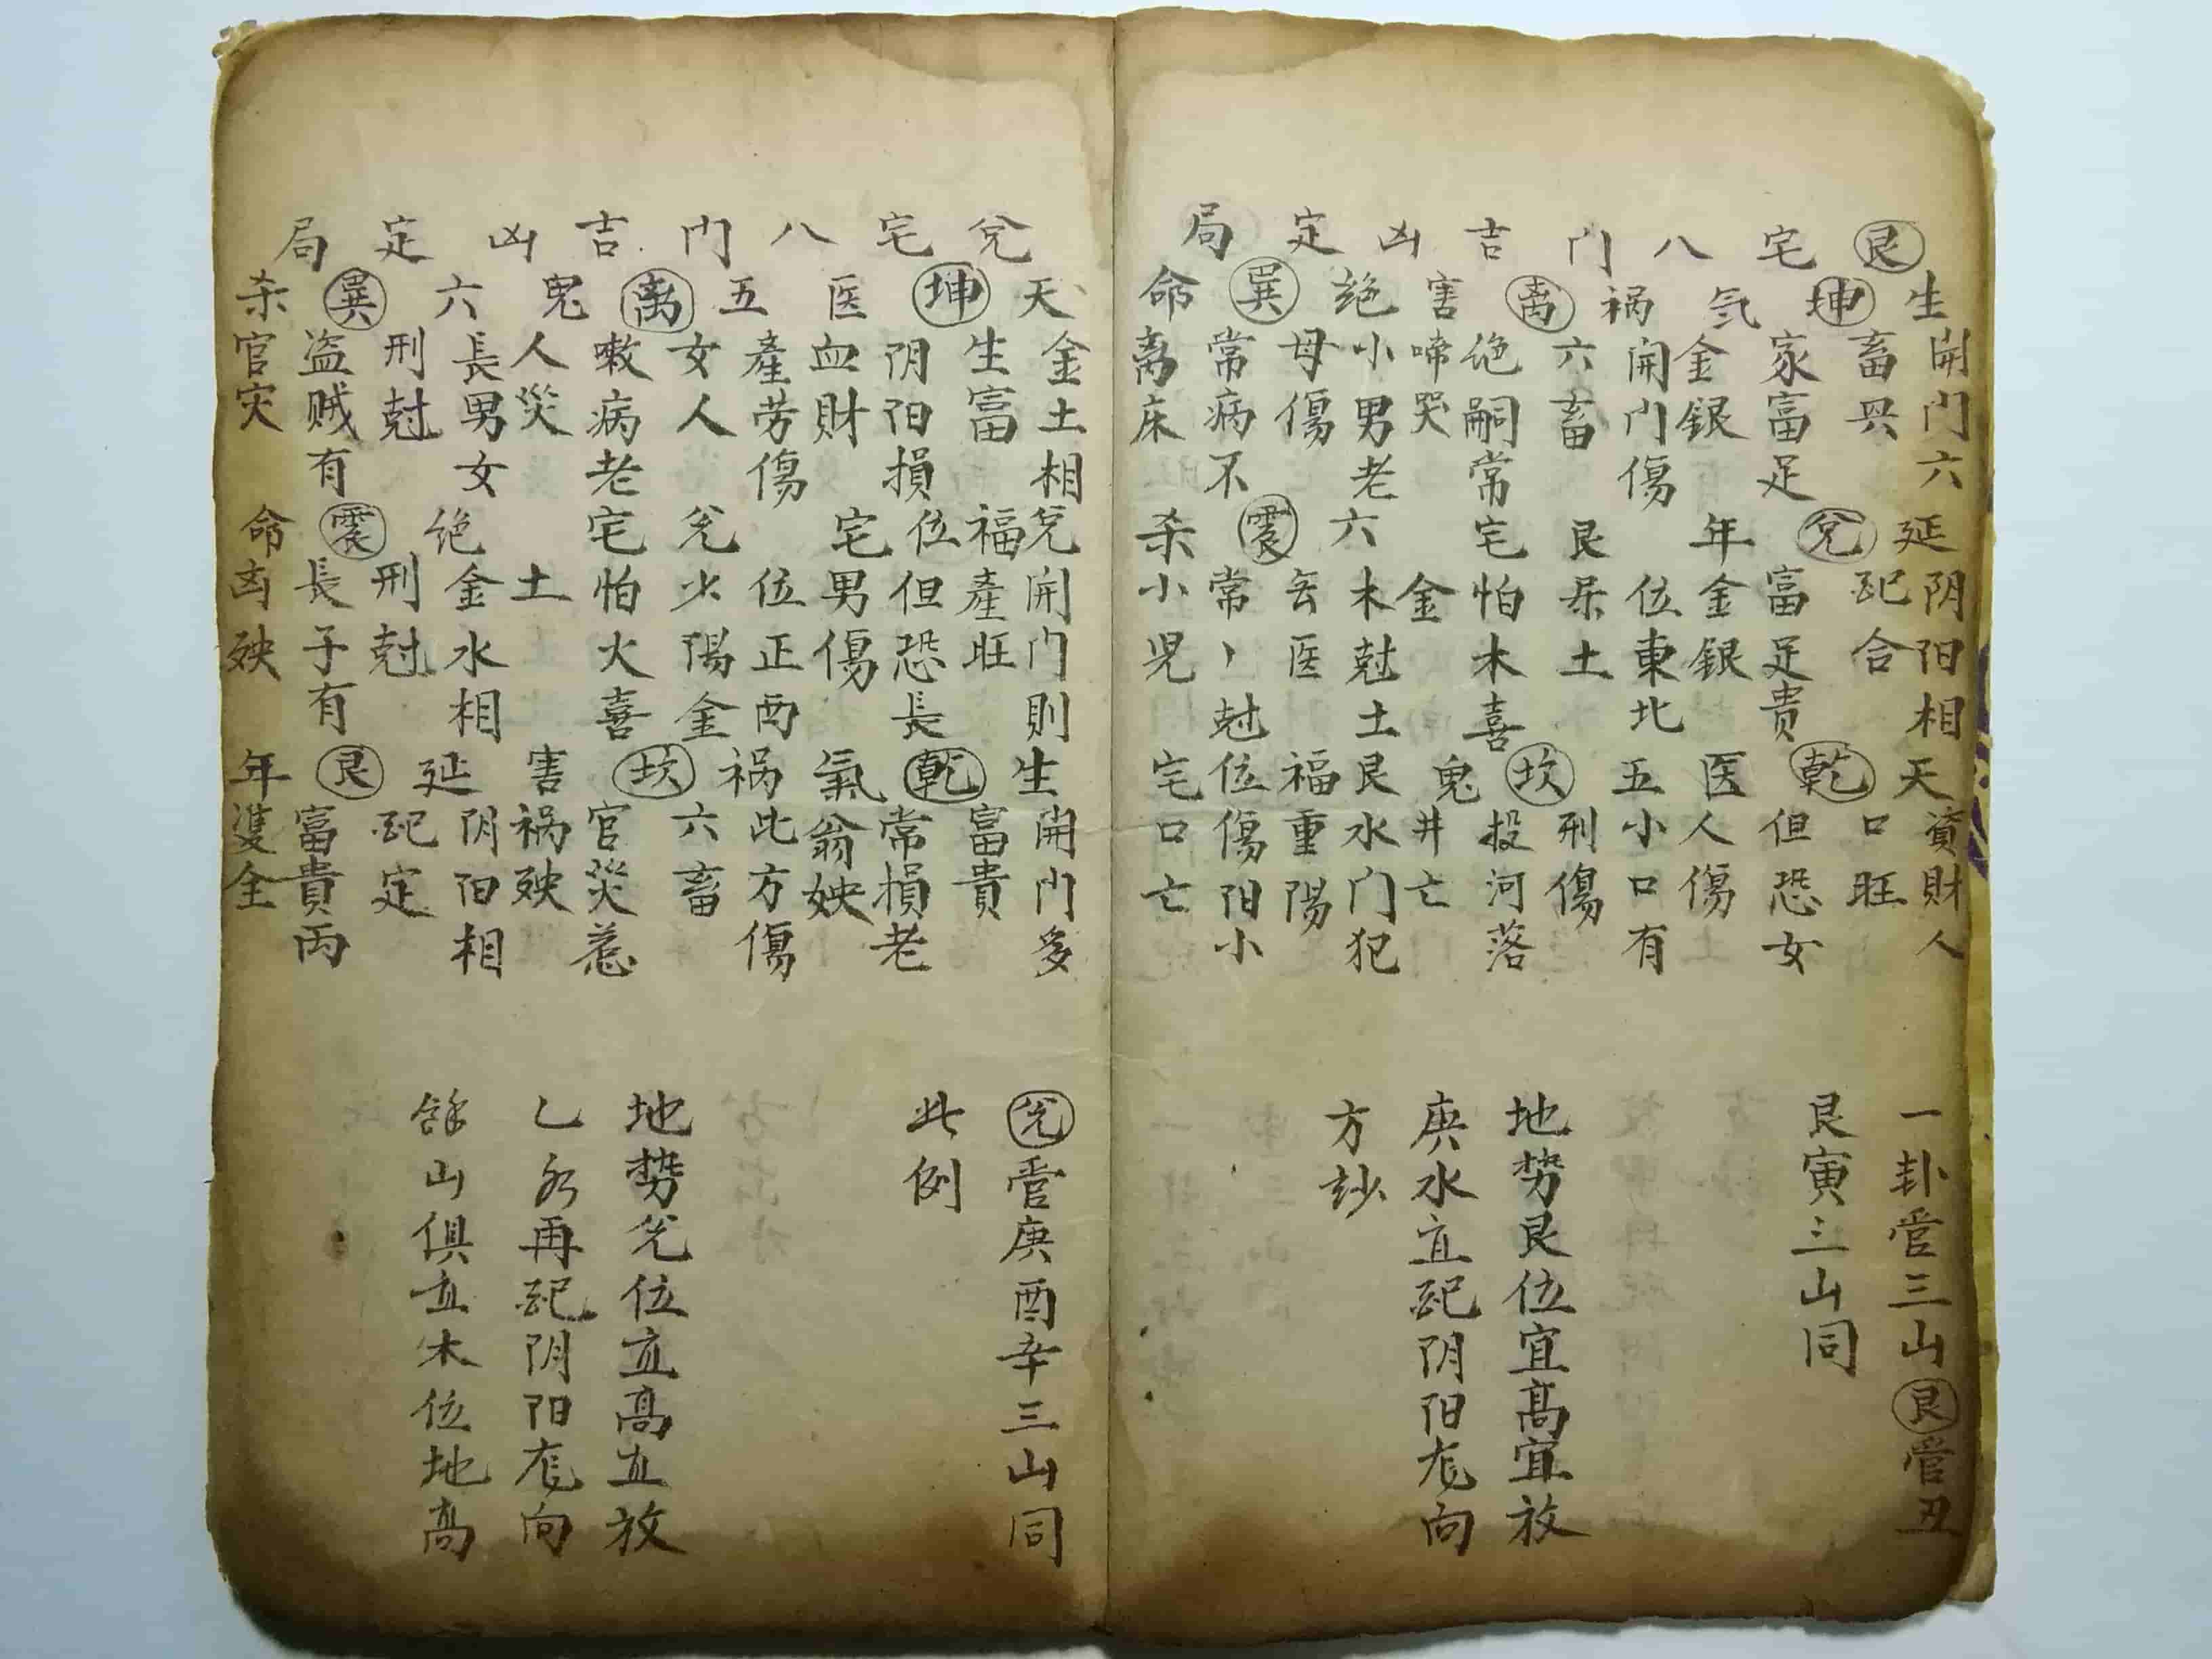 艮宅八门吉凶定局
生坤气
開门六
畜兴
家富足
金銀
祸离害
開门傷
六畜
绝嗣常
啼哭
绝巽命
小男老
母傷
常病不
离床
延兌年
阴阳相
配合
富足贵
金銀
艮宅
位東北
屎土
宅怕木喜
金
六震杀
木尅土
去医
常丶尅
小児
天乾医
資財人
口旺
但恐女
人傷
五坎鬼
小口有
刑傷
投河落
井亡
艮福位宅
水门犯
重陽
傷阳小
口亡
一卦管三山艮管丑
艮寅三山同
地势艮位宜高宜放
庚水宜配阴阳尨向
方妙
兌宅八门吉凶定局
天坤医
金土相
生富
阴阳損
血財
五离鬼
產劳傷
女人
嗽病老
人災
六巽杀
長男女
刑尅
盗贼有
官灾
兌福位宅
開门則
產旺
但恐長
男傷
兌宅
位正西
少陽金
怕火喜
土
绝震命
金水相
刑尅
長子有
凶殃
生乾氣
開门多
富貴
常損老
翁殃
祸坎害
此方傷
六畜
官災惹
祸殃
延艮年
阴阳相
配定
富貴両
隻全
兌管庚酉辛三山同
此例
地势兌位宜高宜放
乙水再配阴阳尨向
餘山俱宜木位地高